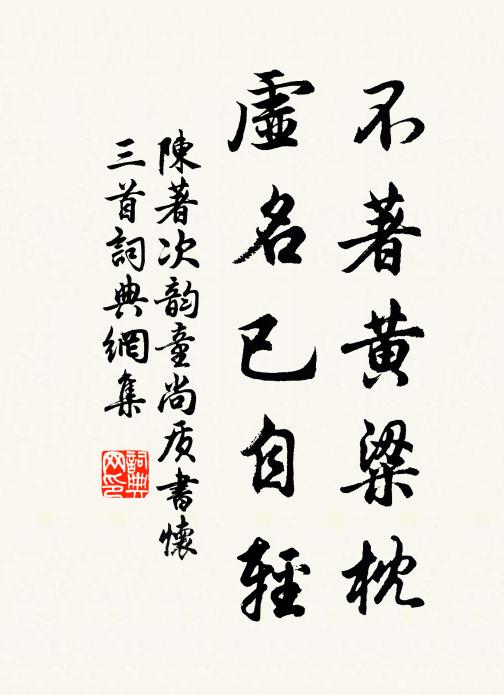 不著黄粱枕
虚名已自輕
陳著次韵童尚质書懷
三首詞典網集
詞典
网印